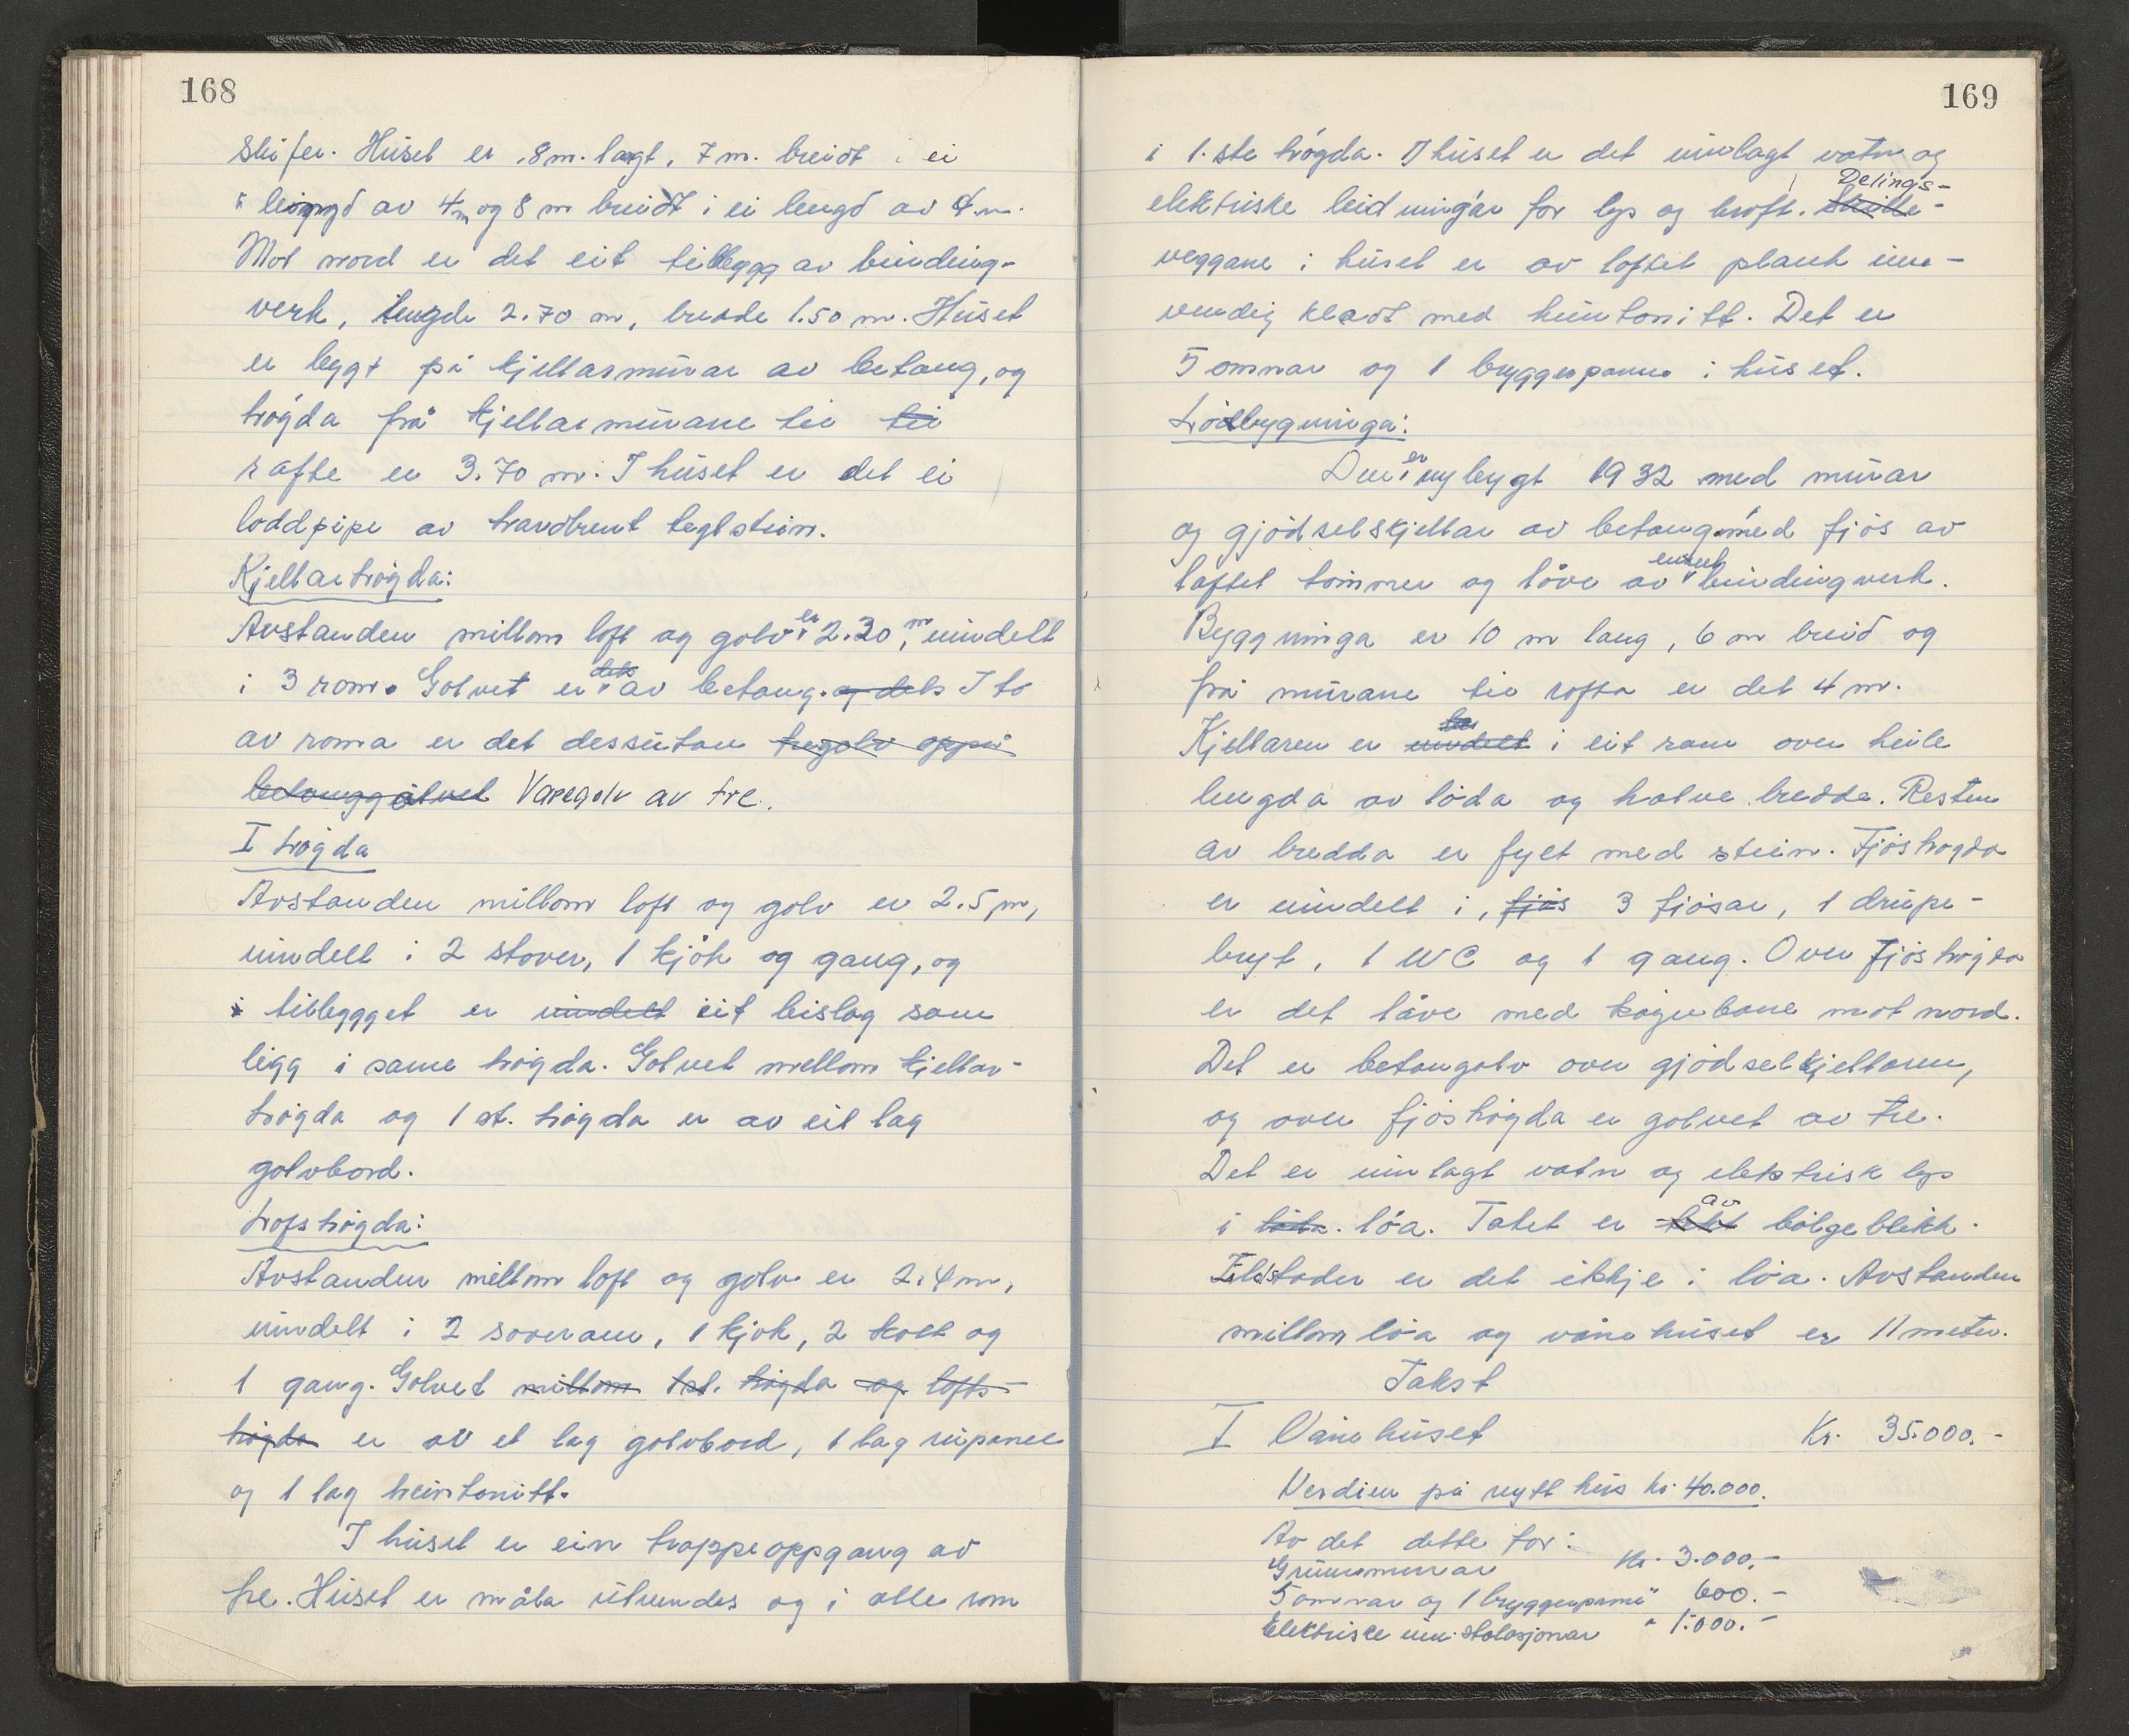 168
skifer. Huset er 8 m. langt, 7 m. breidt i ei
lengd av 4 m og 8 m breidt i ei lengd av 4 m.
Mot nord er det eit tilbygg av binding-
verk, lengde 2.70 m, bredde 1.50 m. Huset
er bygt på kjellarmurar av betong, og
høgda frå kjellarmurane til til
rafte er 3.70 m. I huset er det ei
loddpipe av hardbrent teglstein.
Kjellarhøgda:
Avstanden millom loft og golv er 2.20 m, inndelt
i 3 rom. Golvet er dels av betong. og dels I to
av roma er det dessutan tregolv oppå
betonggolvet Varegolv av tre.
I høgda
Avstanden millom loft og golv er 2.5 m,
inndelt i 2 stover, 1 kjøk og gang, og
i tilbygget er inndelt eit bislag som
ligg i same høgda. Golvet mellom kjellar-
høgda og 1 st. høgda er av eit lag
golvbord.
Loftshøgda:
Avstanden millom loft og golv er 2.4 m,
inndelt i 2 soverom, 1 kjøk, 2 kott og
1 gang. Golvet millom 1st. høgda og lofts-
høgda er av et lag golvbord, 1 lag rupanel
og 1 lag huntonitt.
I huset er ein trappeoppgang av
tre. Huset er måla utvendes og i alle rom
169
i 1.ste høgda. I huset er det innlagt vatn og
elektriske leidningar for lys og kraft. Skille- Delings-
veggane i huset er av loftet plank inn-
vendig kledt med huntonitt. Det er
5 omnar og 1 bryggepanne i huset.
Lødbygninga:
Den er nybygt 1932 med murar
og gjødselskjellar av betong med fjøs av
laftet tømmer og låve av enkel bindingverk.
Byggninga er 10 m lang, 6 m breid og
frå murane til rafta er det 4 m.
Kjellaren er inndelt i eit rom over heile
lengda av løda og halve bredda. Resten
av bredda er fylt med stein. Fjøshøgda
er inndelt i, fjøs 3 fjøsar, 1 drupe-
bryt, 1 WC og 1 gang. Over fjøshøgda
er det låve med køyrebane mot nord.
Det er betongolv over gjødselkjellaren,
og over fjøshøgda er golvet av tre.
Det er innlagt vatn og elektrisk lys
i løa. Taket er av bølgeblikk.
Eldstader er det ikkje i løa. Avstanden
millom løa og vånehuset er 11 meter.
Takst
I Vånehuset Kr. 35.000.-
Verdien på nytt hus kr. 40.000.
Av det dette for:
Grunnmurar Kr. 3.000.-
5 omnar og 1 bryggepanne " 600.-
Elektriske innstalasjonar " 1.000.-